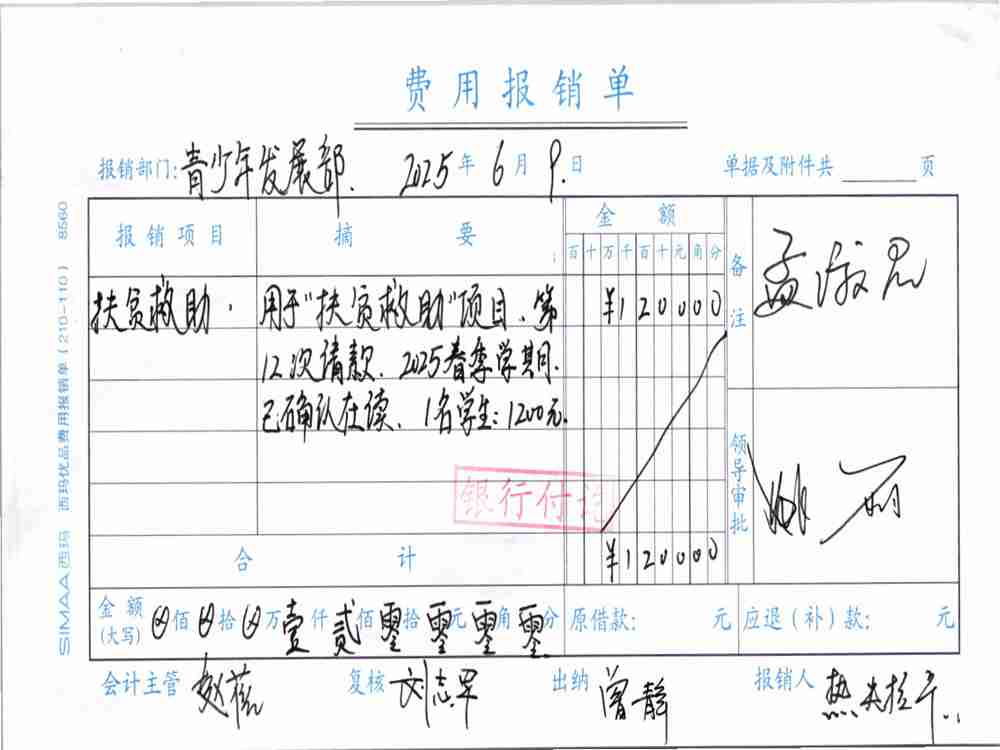 费用报销单
报销部门:青少年发展部. 2025年6月9.日 单据及附件共 页
报销项目 摘要 金额
百十万千百十元角分
备注
扶贫救助. 用于"扶贫救助"项目.第 ¥120000
12次请款.2025春季学期.
已确认在读.1名学生:1200元.
银行付讫
领导审批
合计 ¥120000
金额(大写) 佰 拾 万壹仟贰佰零拾零元零角零分 原借款: 元 应退(补)款: 元
会计主管 复核 刘志军 出纳 曾静 报销人
SIMAA西玛 西玛优品费用报销单(210-110) 8560